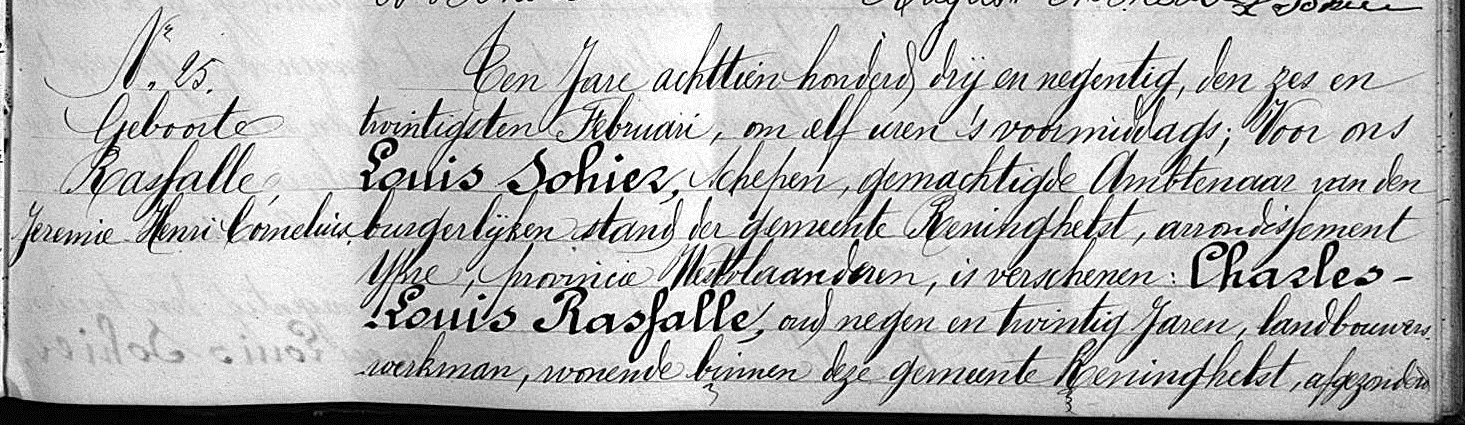 N.r 25.
Geboorte
Rasfalle
Jeremie Henri Cornelius.
Ten Jare achttien honderd drij en negentig, den zes en
twintigsten Februari, om elf uren 's voormiddags; Voor ons
Louis Sohier, Schepen, gemachtigde Ambtenaar van den
burgerlijken stand der gemeente Reninghelst, arrondissement
Ypre, provincie Westvlaanderen, is verschenen: Charles-
Louis Rasfalle, oud negen en twintig Jaren, landbouwers
werkman, wonende binnen deze gemeente Reninghelst, afgezonderd